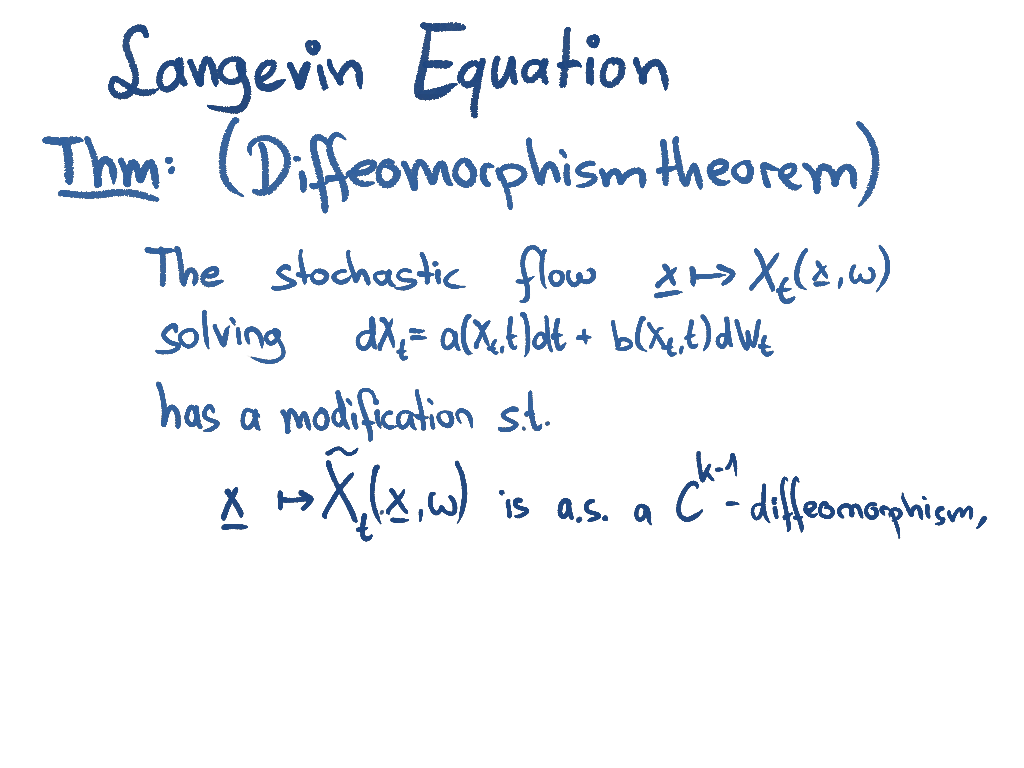 Langevin Equation
Thm: (Diffeomorphism theorem)
The stochastic flow x ↦ Xₜ(x,ω)
solving dXₜ = a(Xₜ,t)dt + b(Xₜ,t)dWₜ
has a modification s.t.
x ↦ X̃ₜ(x,ω) is a.s. a Cᵏ⁻¹-diffeomorphism,